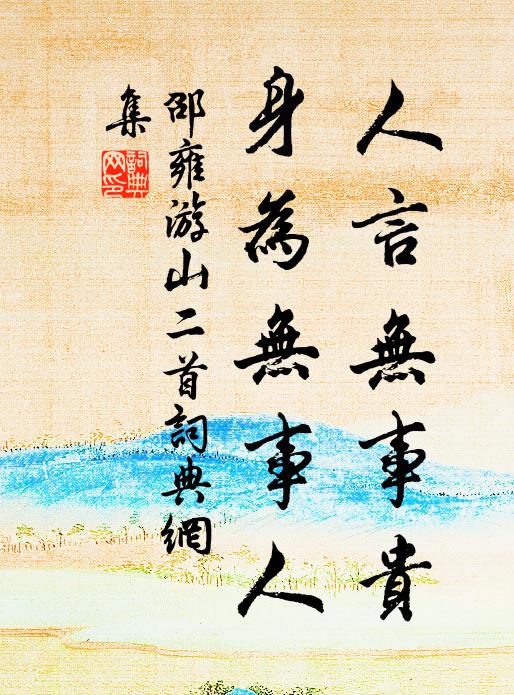 人言無事貴
身為無事人
邵雍游山二首詞典網
集
詞典
网印